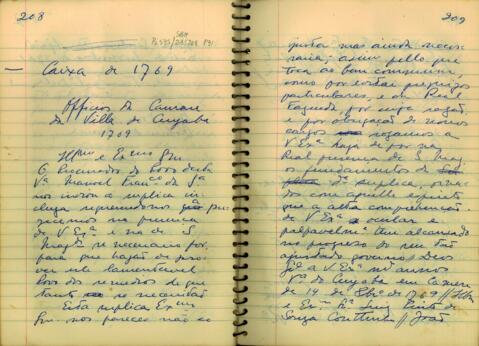 208
— Caixa de 1769
Officio da Camara
da Villa do Cuyabá
1769
Illmo e Exmo Snr
O Procurador do povo desta
Va Manoel Franco da Sa
nos invióu a suplica in-
cluza reprezentando que pu-
zecemos na prezença
de V Exa e na de S
Magde se necesario for,
para que hajão de pro-
ver este lamentavel
Povo dos remedios de que
tanto se necesita
Esta suplica Exmo
Snr nos pareceu não só
209
justa mas ainda neces-
saria; asim pello que
toca ao bem commum,
como por evitar prejuizos
particulares, e da Real
Fazenda, por cuja razão
e por obrigação de nosos
cargos rogamos a
V Exa haja de por na
Real prezença de S. Mag
os fundamentos da
suplica,
que a alta comprehenção
de V Exa ocular e
palpavelmte tem alcançado
no progreso do seu tão
ajustado governo/ Deos
Gde a V Exa ms annos
Va do Cuyabá em Camera
de 14 de 8bro de 1769 // Illm
e Exmo Sr Luiz Pinto de
Souza Couttinho // João